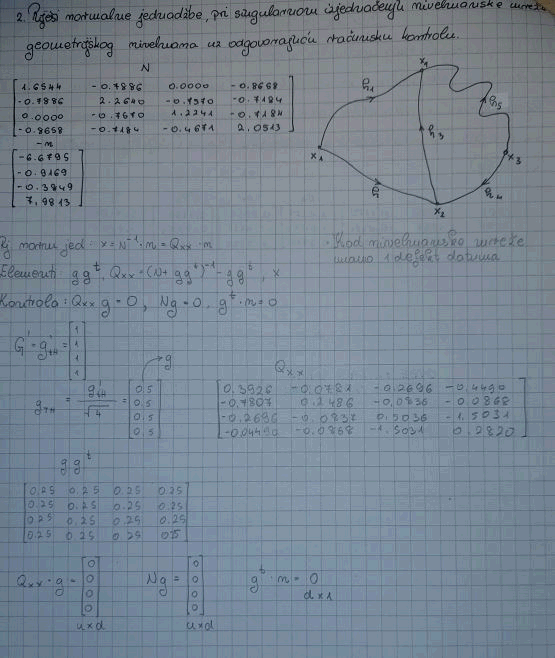 2. Riješi normalne jednadžbe, pri singularnom izjednačenju nivelmanske mreže
geometrijskog nivelmana uz odgovarajuću računsku kontrolu.
N
1.6544 -0.7886 0.0000 -0.8658
-0.7886 2.2640 -0.7570 -0.7184
0.0000 -0.7570 1.2241 -0.7184
-0.8658 -0.7184 -0.4671 2.0513
-n
-6.6795
-0.9169
-0.3849
7,9813
x1
h1
h5
h3
x1
x3
h
h4
x2
Rj. normu jed: x = N⁻¹ · n = Qxx · n
Elementi: g gᵗ, Qxx = (N + g gᵗ)⁻¹ - g gᵗ, x
Kontrola: Qxx g = 0, Ng = 0, gᵗ · n = 0
· Kod nivelmanske mreže
imamo 1 defekt datuma
1
1
1
1
g
√4
0.5
0.5
0.5
0.5
g
Qxx
0.3926 -0.0781 -0.2696 -0.4490
-0.7807 0.2486 -0.0836 -0.0868
-0.2696 -0.0837 0.5036 -1.5031
-0.04490 -0.0868 -1.5031 0.2820
g gᵗ
0.25 0.25 0.25 0.25
0.25 0.25 0.25 0.25
0.25 0.25 0.25 0.25
0.25 0.25 0.25
Qxx · g = 0 0 0 0
u x d
Ng = 0 0 0 0
u x d
gᵗ · n = 0
d x 1